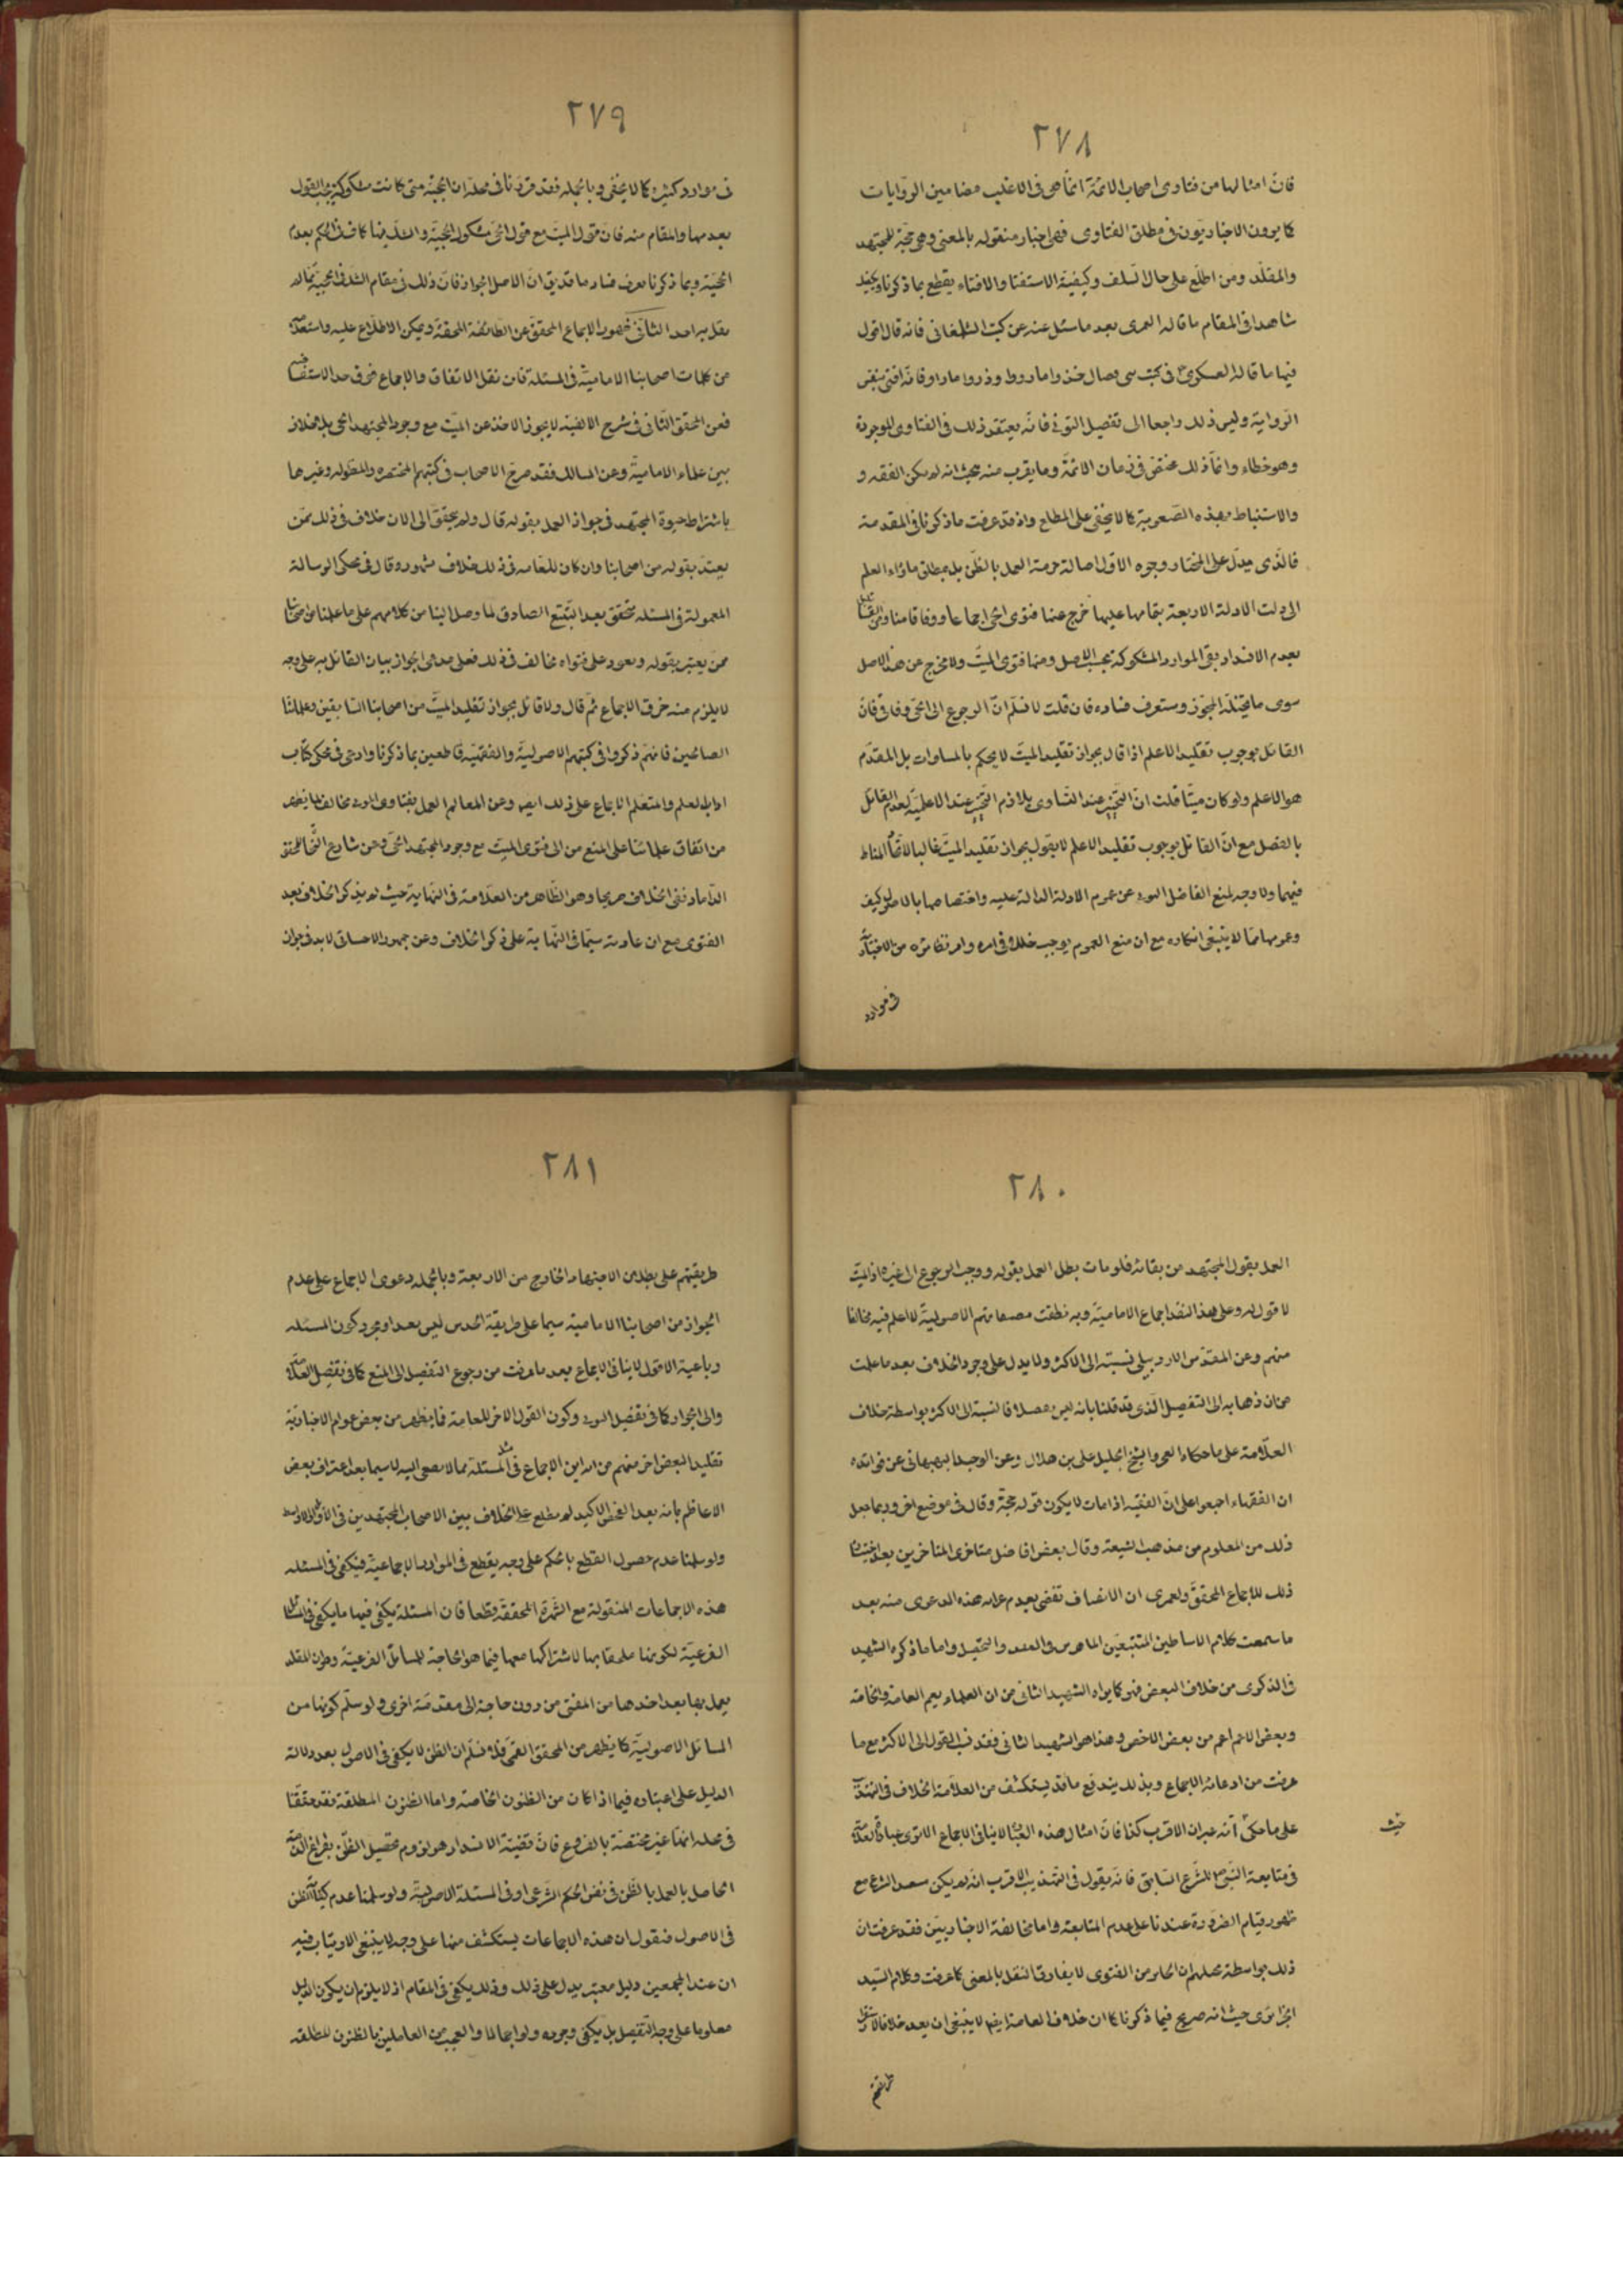 ٢٧٨
فانّ امثالها من فتاوى اصحاب الائمّة انّما هى فى الاغلب مضامين الروّايات
كما يرون الاخباريّون فى مطلق الفتاوى فهى اخبار منقوله بالمعنى وهى حجّة للمجتهد
والمقلّد ومن اطّلع على حال السّلف وكيفيّة الاستفتا والافتاء يقطع بما ذكرنا ويكفيك
شاهدا فى المقام ما قاله العمرى بعد ما سئل عنه عن كتب الشّلمغانى فانه قال اقول
فيها ما قاله العسكرىّ فى كتب بنى فضال خذوا ما رووا وذروا ما راوا فانّه افتى بنفس
الرّواية وليس ذلك راجعا الى تفصيل التونى فانّه يعتقد ذلك فى الفتاوى الموجودة
وهو خطاء وانّما ذلك مختصّ فى زمان الائمّة وما يقرب منه بحيث انه لم يكن الفقه و
والاستنباط بهذه الصّعوبة كما لا يخفى على المطلع واذ قد عرفت ما ذكرنا فى المقدمة
فالّذى يدلّ على المختار وجوه الاوّل اصالة حرمة العمل بالظّن بل بمطلق ماوراء العلم
الى دلت الادلة الاربعة بتمامها عليها خرج عنها فتوى الحىّ اجماعا ووفاقا منا ومن القائل
بعدم الانسداد بقى الموارد المشكوكة بحسب الاصل ومنها فتوى الميّت ولا مخرج عن هذا الاصل
سوى ما يتخيّله المجوّز وستعرف فساده فان قلت لا نسلّم انّ الرجوع الى الحىّ وفاقى فانّ
القائل بوجوب تقليد الاعلم اذا قال بجواز تقليد الميّت لا يحكم بالمساوات بل المقدّم
هو الاعلم ولو كان ميتّا قلت انّ التّخيّر عند التّساوى يلازم التّخيّر عند الاعلميّة لعدم القائل
بالفصل مع انّ القائل بوجوب تقليد الاعلم لا يقول بجواز تقليد الميّت غالبا لاتّحاد المناط
فيهما ولا وجه لمنع الفاضل التونى عن عموم الادلة الدالة عليه واختصاصها بالاصول كيف
وعمومها ممّا لا ينبغى انكاره مع ان منع العموم يوجب خلله فى امره وامر نظائره من الاخباريّة
فى موارد
٢٧٩
فى موارد كثيرة كما لا يخفى وبالجمله فقد قرّرنا فى محلّه ان الحجيّة متى كانت مشكوكة يجب القول
بعدمها والمقام منه فانّ قول الميت مع قول الحىّ مشكوك الحجيّة والشكّ فيها كاف فى الحكم بعدم
الحجيّة وبما ذكرنا يعرف فساد ما قد يق انّ الاصل الجواز فانّ ذلك فى مقام الشكّ فى الحجيّة ممّا لم
يقل به احد الثّانى ظهور الاجماع المحقّق عن الطّائفة المحقّة ويمكن الاطلاع عليه واستعلامه
من كلمات اصحابنا الاماميّة فى المسئلة فان نقل الاتفاق والاجماع فى حد الاستفاضة
فعن المحقق الثّانى فى شرح الالفية لا يجوز الاخذ عن الميّت مع وجود المجتهد الحى بلا خلاف
بين علماء الاماميّة وعن المسالك فقد صرّح الاصحاب فى كتبهم المختصرة والمطوله وغيرهما
باشتراط حيوة المجتهد فى جواز العمل بقوله قال ولم يتحقّق الى الان خلاف فى ذلك ممّن
يعتدّ بقوله من اصحابنا وان كان للعامه فى ذلك خلاف مشهور وقال فى محكى الرسالة
المعمولة فى المسئله نتحقق بعد التّتبّع الصادق لما وصل الينا من كلامهم على ما علمنا من اصحابنا
ممّن يعتبر بقوله ويعوّد على فتواه مخالف فى ذلك فعلى مدعى الجواز بيان القائل به على وجه
لا يلزم منه خرق الاجماع ثم قال ولا قائل بجواز تقليد الميّت من اصحابنا السّابقين وعلمائنا
الصالحين فانّهم ذكروا فى كتبهم الاصوليّة والفقهيّة قاطعين بما ذكرنا وادعى فى محكى كتاب
اداب العلم والمتعلم الاجماع على ذلك ايضا وعن المعالم العمل بفتاوى الموتى مخالف لما يظهر
من اتفاق علمائنا على المنع من الى فتوى الميت مع وجود المجتهد الحىّ وعن شارع النّجاة للمحقق
الدّاماد نفى الخلاف صريحا وهو الظّاهر من العلاّمة فى النّهاية حيث لم يذكر الخلاف بعد
الفتوى مع ان عادته سيّما فى النّهاية على ذكر الخلاف وعن جمهور الاحسائى لا بد فى جواز
٢٨٠
العمل بقول المجتهد من بقائه فلو مات بطل العمل بقوله ووجب الرجوع الى غيره اذ الميّت
لا قول له وعلى هذا انعقد اجماع الاماميّة وبه نطقت مصنفاتهم الاصوليّة لا اعلم فيه مخالفا
منهم وعن المقدّس الاردبيلى نسبته الى الاكثر ولا يدل على وجود الخلاف بعد ما علمت
من ان ذهابه الى التفصيل الّذى قد قلنا بانه ليس مفصلا فالنسبة الى الاكثر بواسطة خلاف
العلّامة على ما حكاه العمى والشّيخ الجليل على بن هلال وعن الوحيد البهبهانى عن فوائده
ان الفقهاء اجمعوا على انّ الفقيه اذا مات لا يكون قوله حجّة وقال فى موضع اخر وربما جعل
ذلك من المعلوم من مذهب الشيعة وقال بعض افاضل متاخرى المتاخرين بعد
ذلك للاجماع المحقّق ولعمرى ان الانصاف تقضى بعدم غرابه هذه الدعوى منه بعد
ما سمعت كلام الاساطين المتتبعين الماهرين والنقد والتحصيل واما ما ذكره الشهيد
فى الذكرى من خلاف البعض فهو كما يراه الشهيد الثانى من ان العلماء يعم العامّة والخاصّة
وبعض الاعم اعم من بعض الاخص وهذا هو الشهيد الثانى فقد نسب القول الى الاكثر مع ما
عرفت من ادعائه الاجماع وبذلك يندفع ما قد يستكشف من العلاّمة الخلاف فى التهذيب
على ما حكى انّه عبر ان الاقرب كذا فانّ امثال هذه العبارة لا ينافى الاجماع الا ترى عبارة العلاّمة
حيث
فى متابعة النبىّ للشّرع السّابق فانّه يقول فى التهذيب الاقرب انه لم يكن متعبدا بشرع مع
ظهور قيام الضّرورة عندنا على عدم المتابعة واما مخالفة الاخباريين فقد عرفت انّ
ذلك بواسطة جهلهم ان الحابر من الفتوى لا يفارق النقل بالمعنى كما عرفت وكلام السّيد
الجزائرى حيث انه صريح فيما ذكرنا كما ان خلاف العامة ايضا لا ينبغى ان يعد خلافا
طريقتهم
٢٨١
طريقتهم على بطلان الاجتهاد الخارج من الاربعة وبالجمله دعوى الاجماع على عدم
الجواز من اصحابنا الاماميّة سيما على طريقة الحدس ليس بعيدا ومجرد كون المسئله
رباعية الاقوال لا ينافى الاجماع بعد ما عرفت من رجوع التفصيل الى المنع كما فى تفصيل العلّامة
والى الجواز كما فى تفصيل التونى وكون القول الاخر للعامة فما يظهر من بعض عوام الاخباريّة
تقليدا لبعض اخر منهم من انه اين الاجماع فى المسئلة مما لا يصغى اليه لا سيما بعد اعتراف بعض
الاعاظم بانه بعد الفحص الاكيد لم يطلع على الخلاف بين الاصحاب المجتهدين فى الاوائل والاواسط
ولو سلمنا عدم حصول القطع بالحكم على وجه يقطع فى الموارد الاجماعيّة فيكفى فى المسئله
هذه الاجماعات المنقولة مع الشّهرة المحققة قطعا فان المسئلة يكفى فيها ما يكفى فى المسائل
الفرعيّة لكونها ملحقا بها لاشتراكها معها فيما هو الحاجة للمسائل الفرعيّة وهو ان المقلد
يعمل بها بعد اخذها من المفتى من دون حاجة الى مقدّمة اخرى ولو سلّم كونها من
المسائل الاصوليّة كما يظهر من المحقق القمّى فلا نسلّم ان الظن لا يكفى فى الاصول بعد دلالة
الدليل على اعتباره فيما اذا كان من الظنون الخاصة واما الظنون المطلقة فقد حقّقنا
فى محله انها غير مختصّة بالفروع فانّ قضيّة الانسداد هو لزوم تحصيل الظّن بفراغ الذمّة
الحاصل بالعمل بالظّن فى نفس الحكم الشّرعى او فى المسئلة الاصوليّة ولو سلمنا عدم كفاية الظن
فى الاصول فنقول ان هذه الاجماعات يستكشف منها على وجه لا ينبغى الارتياب فيه
ان عند المجمعين دليل معتبر يدل على ذلك وذلك يكفى فى المقام اذ لا يلزم ان يكون الدليل
معلوما على وجه التفصيل بل يكفى وجوده ولو اجمالا والعجب من العاملين بالظنون المطلقه